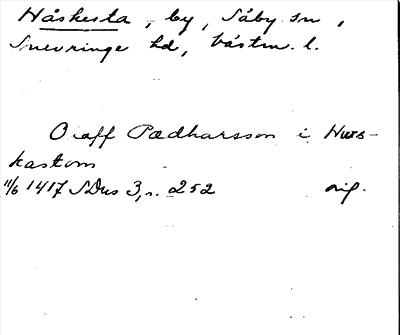 Håskesta, by, Säby sn,
Snevringe hd, Västm. l.
Olaff Pædharsson i Hurs-
kastom
11/6 1417 SDns 3, s. 252 orig.